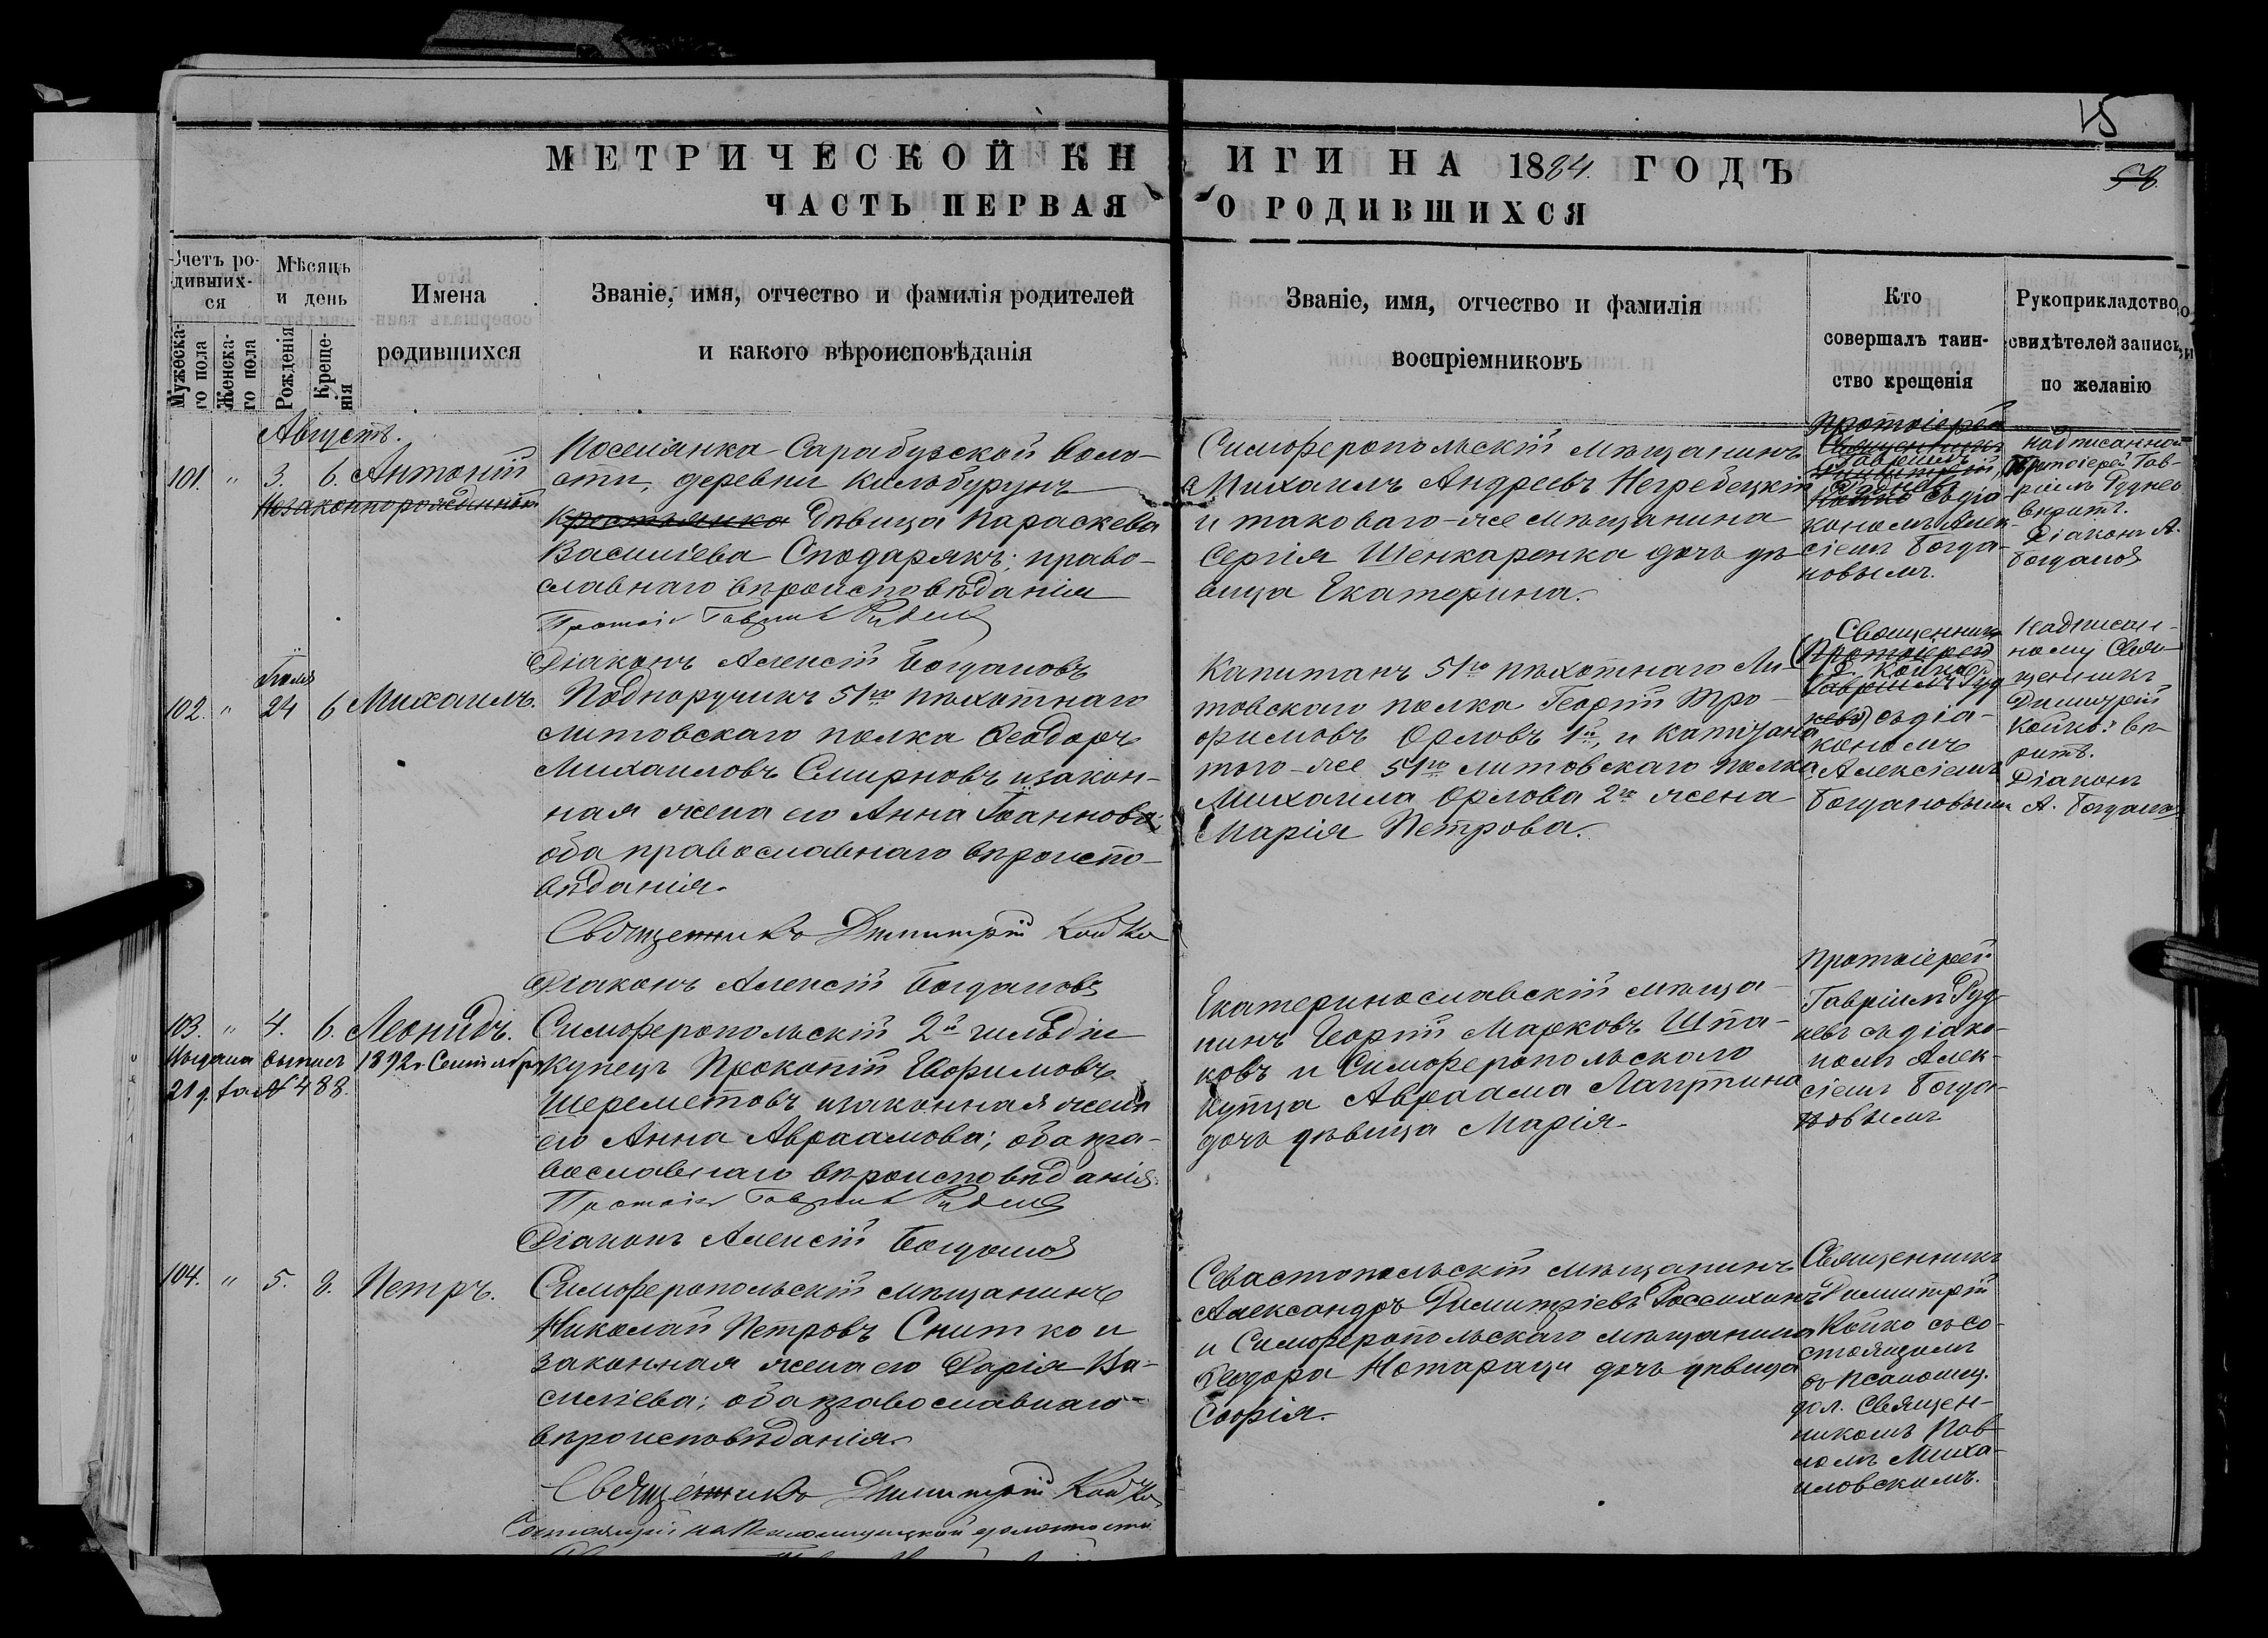 15
МЕТРИЧЕСКОЙ КНИГИ НА 1884. ГОДЪ
58.
ЧАСТЬ ПЕРВАЯ О РОДИВШИХСЯ
Счетъ ро-
дивших-
ся
Мужеска-
го пола
Женска-
го пола
Мѣсяцъ
и день
Рожденія
Креще-
нія
Имена
родившихся
Званіе, имя, отчество и фамилія родителей
и какого вѣроисповѣданія
Званіе, имя, отчество и фамилія
воспріемниковъ
Кто
совершалъ таин-
ство крещенія
Рукоприкладство
свидѣтелей записи
по желанію
Августъ.
101. " 3. 6. Антоній
Незаконнорожденный
Поселянка Сарабузской воло-
сти, деревни Кильбурунъ
крестьянка дѣвица Параскева
Васильева Сподарякъ; право-
славнаго вѣроисповѣданія
Діаконъ Алексій Богдановъ
Симферопольскій мѣщанинъ
Михаилъ Андреевъ Негребецкій
и таковаго-же мѣщанина
Сергія Шенкаренка дочь дѣ-
вица Екатерина.
Протоіерей
Священникъ
Гавріилъ
Димитрій
Руднев
Койко съ діа-
кономъ Алек-
сіемъ Богда-
новымъ.
Надписанно
Протоіерей Гав-
ріилъ Руднев
вѣрить.
Діаконъ А.
Богданов
Іюля
102. " 24 6 Михаилъ.
Подпоручикъ 51го пѣхотнаго
литовскаго полка Ѳеодоръ
Михаиловъ Смирновъ и закон-
ная жена его Анна Іоаннова;
оба православнаго вѣроиспо-
вѣданія.
Священникъ Димитрій Койко
Діаконъ Алексій Богдановъ
Капитанъ 51го пѣхотнаго Ли-
товскаго полка Георгій Тро-
фимовъ Орловъ 1й, и капитана
того-же 51го литовскаго полка
Михаила Орлова 2го жена
Марія Петрова.
Священникъ
(Протоіерей
Д. Койко
Гавріилъ Руд
невъ) съ діа-
кономъ
Алексіемъ
Богдановымъ
Надписан-
ному Свя-
щенникъ
Димитрій
Койко: вѣ-
ритъ.
Діаконъ
А. Богданов
103. " 4. 6. Леонидъ.
Выдана выпись 1892 г. Сентября
21 д. за № 488.
Симферопольскій 2й гильдіи
купецъ Прокопій Ефимовъ
Шереметовъ и законная жена
его Анна Авраамова; оба пра-
вославнаго вѣроисповѣданія.
Діаконъ Алексій Богданов
Екатеринославскій мѣща-
нинъ Георгій Марковъ Шпа-
ковъ и Симферопольскаго
купца Авраама Лаптина
дочь дѣвица Марія.
Протоіерей
Гавріилъ Руд-
невъ съ діако-
номъ Алек-
сіемъ Богда-
новымъ
104. " 5. 8. Петръ.
Симферопольскій мѣщанинъ
Николай Петровъ Снитко и
законная жена его Дарія Ва-
сильева; оба православнаго
вѣроисповѣданія.
Священникъ Димитрій Койко
Состоящій на Псаломщицкой должности
Севастопольскій мѣщанинъ
Александръ Димитріевъ Россихинъ
и Симферопольскаго мѣщанина
Ѳеодора Нотараци дочь дѣвица
Софія.
Священникъ
Димитрій
Койко съ со-
стоящимъ
въ псаломщ.
дол. Священ-
никомъ Пав-
ломъ Миха-
иловскимъ.